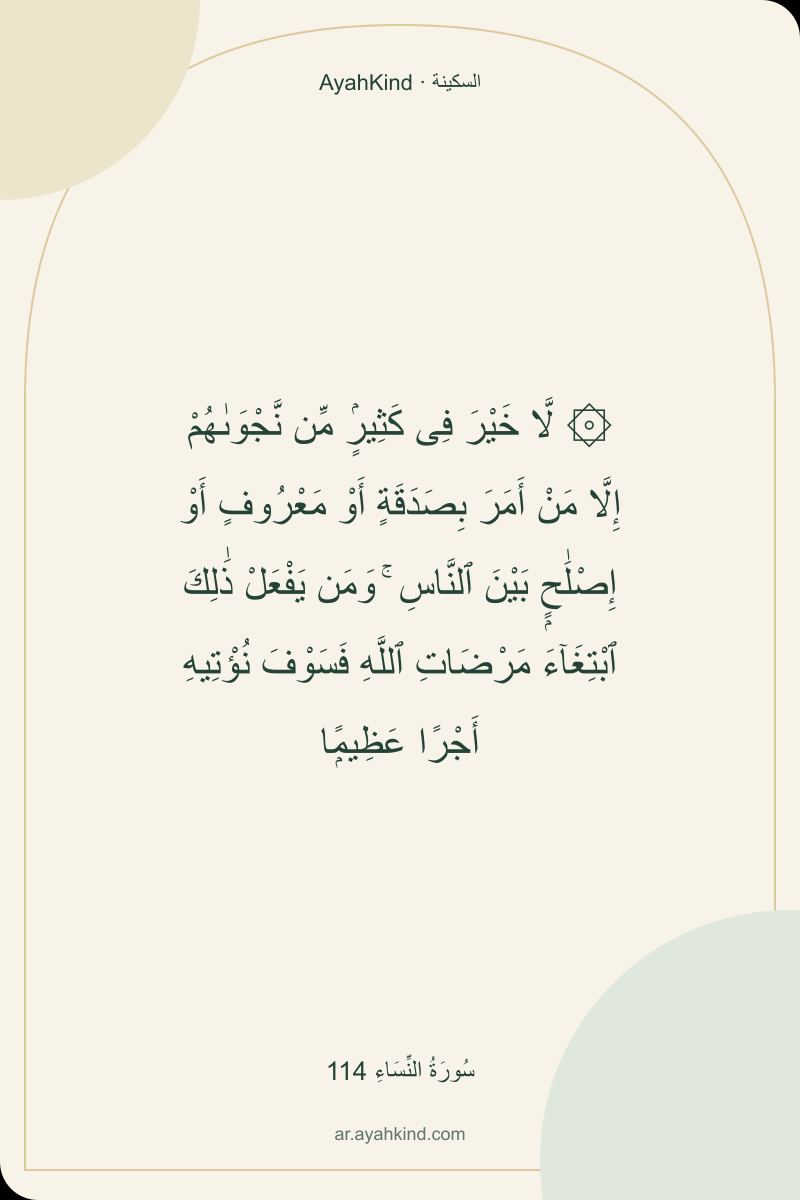 AyahKind · السكينة
۞ لَّا خَيْرَ فِى كَثِيرٍۢ مِّن نَّجْوَىٰهُمْ
إِلَّا مَنْ أَمَرَ بِصَدَقَةٍ أَوْ مَعْرُوفٍ أَوْ
إِصْلَـٰحٍۭ بَيْنَ ٱلنَّاسِ ۚ وَمَن يَفْعَلْ ذَٰلِكَ
ٱبْتِغَآءَ مَرْضَاتِ ٱللَّهِ فَسَوْفَ نُؤْتِيهِ
أَجْرًا عَظِيمًۭا
سُورَةُ النِّسَاءِ 114
ar.ayahkind.com